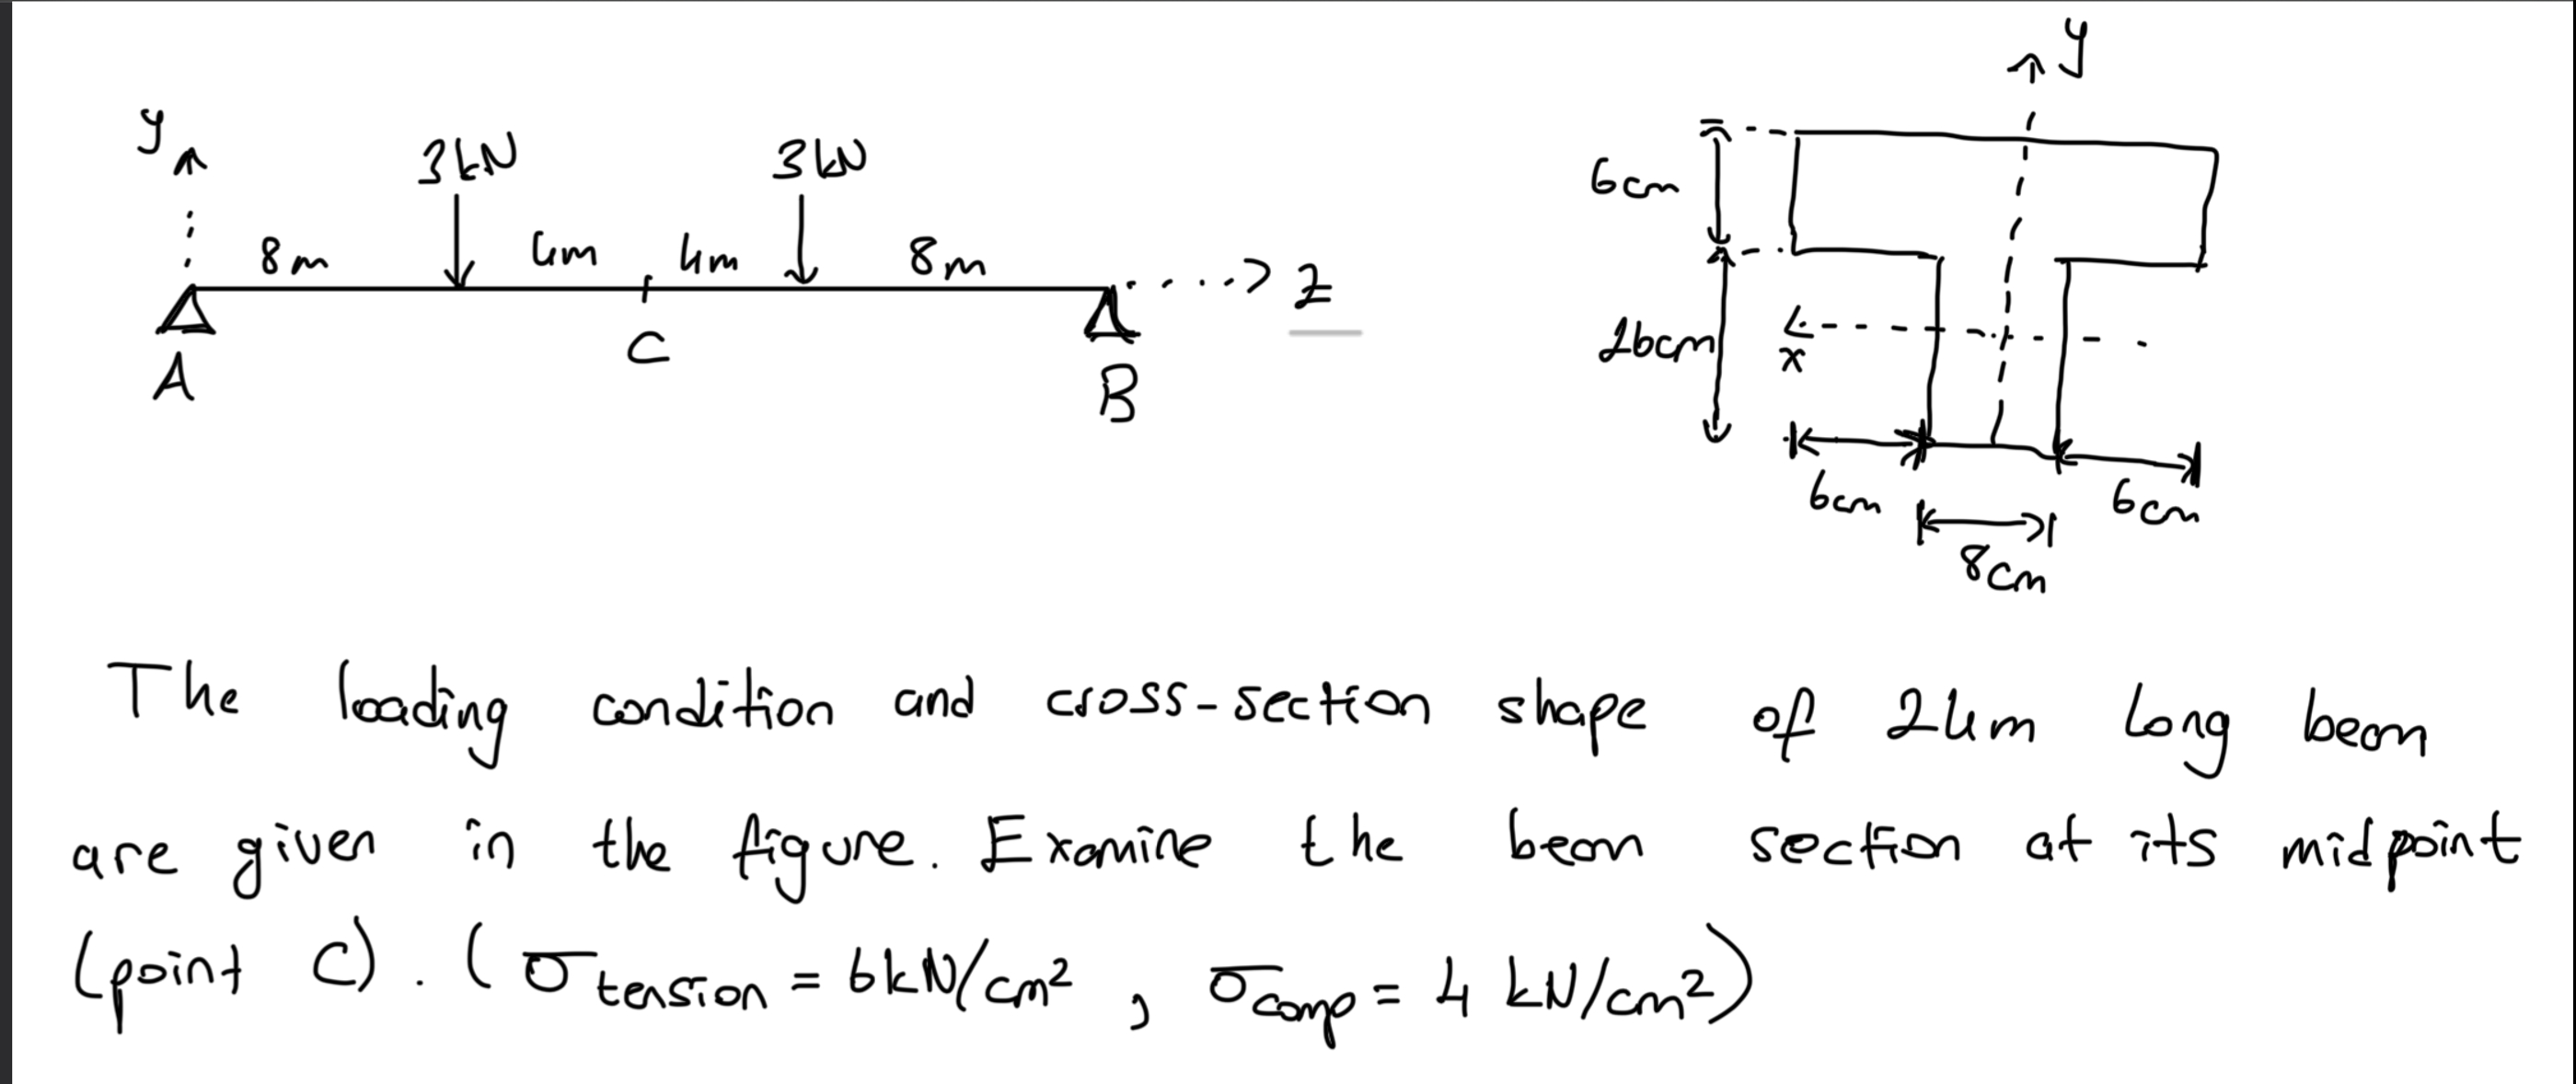 y
3kN
3kN
8m
4m
4m
8m
z
A
C
B
y
6cm
26cm
x
6cm
6cm
8cm
The loading condition and cross-section shape of 24m long beam
are given in the figure. Examine the beam section at its midpoint
(point C). (σ̅tension = 6kN/cm², σ̅comp = 4 kN/cm²)